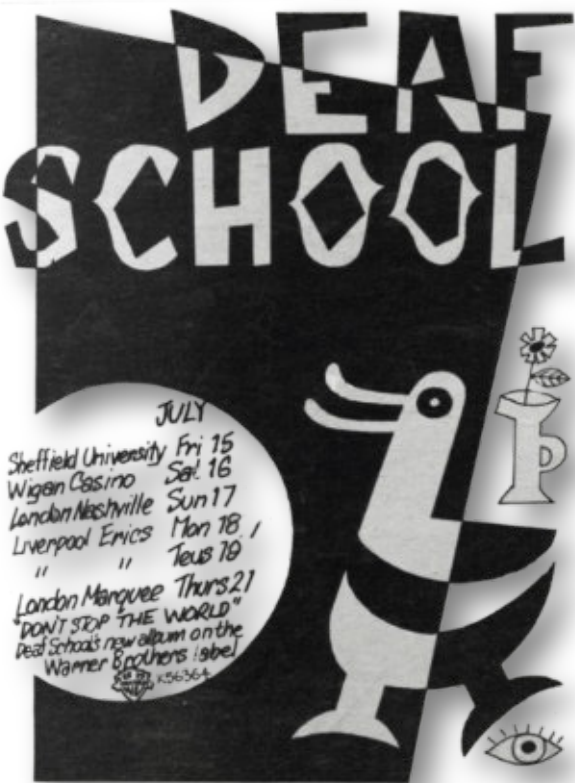 DEAF
SCHOOL
JULY
Sheffield University Fri 15
Wigan Casino Sat 16
London Nashville Sun 17
Liverpool Erics Mon 18
" " Teus 19
London Marquee Thurs 21
"DON'T STOP THE WORLD"
Deaf School's new album on the
Warner Brothers label
K56364